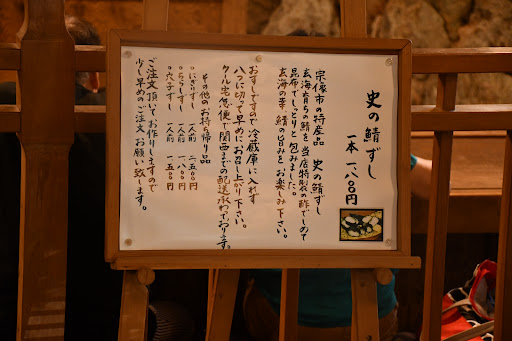 史の鯖ずし
一本 一八〇〇円
宗像市の特産品 史の鯖ずし
玄海育ちの鯖を当店特製の酢でしめて
昆布でしっとりと包みました。
玄海の幸鯖の旨みをお楽しみ下さい。
おすしですので冷蔵庫に入れず
八つに切って早めにお召し上がり下さい。
クール宅急便で関西までの配送承っております。
その他のお持ち帰り品
○にぎりずし 一人前 二五〇〇
○ちらしずし 一人前 一八〇〇
○穴子ずし 一人前 一五〇〇
ご注文頂いてお作りしますので
少し早めのご注文お願い致します。